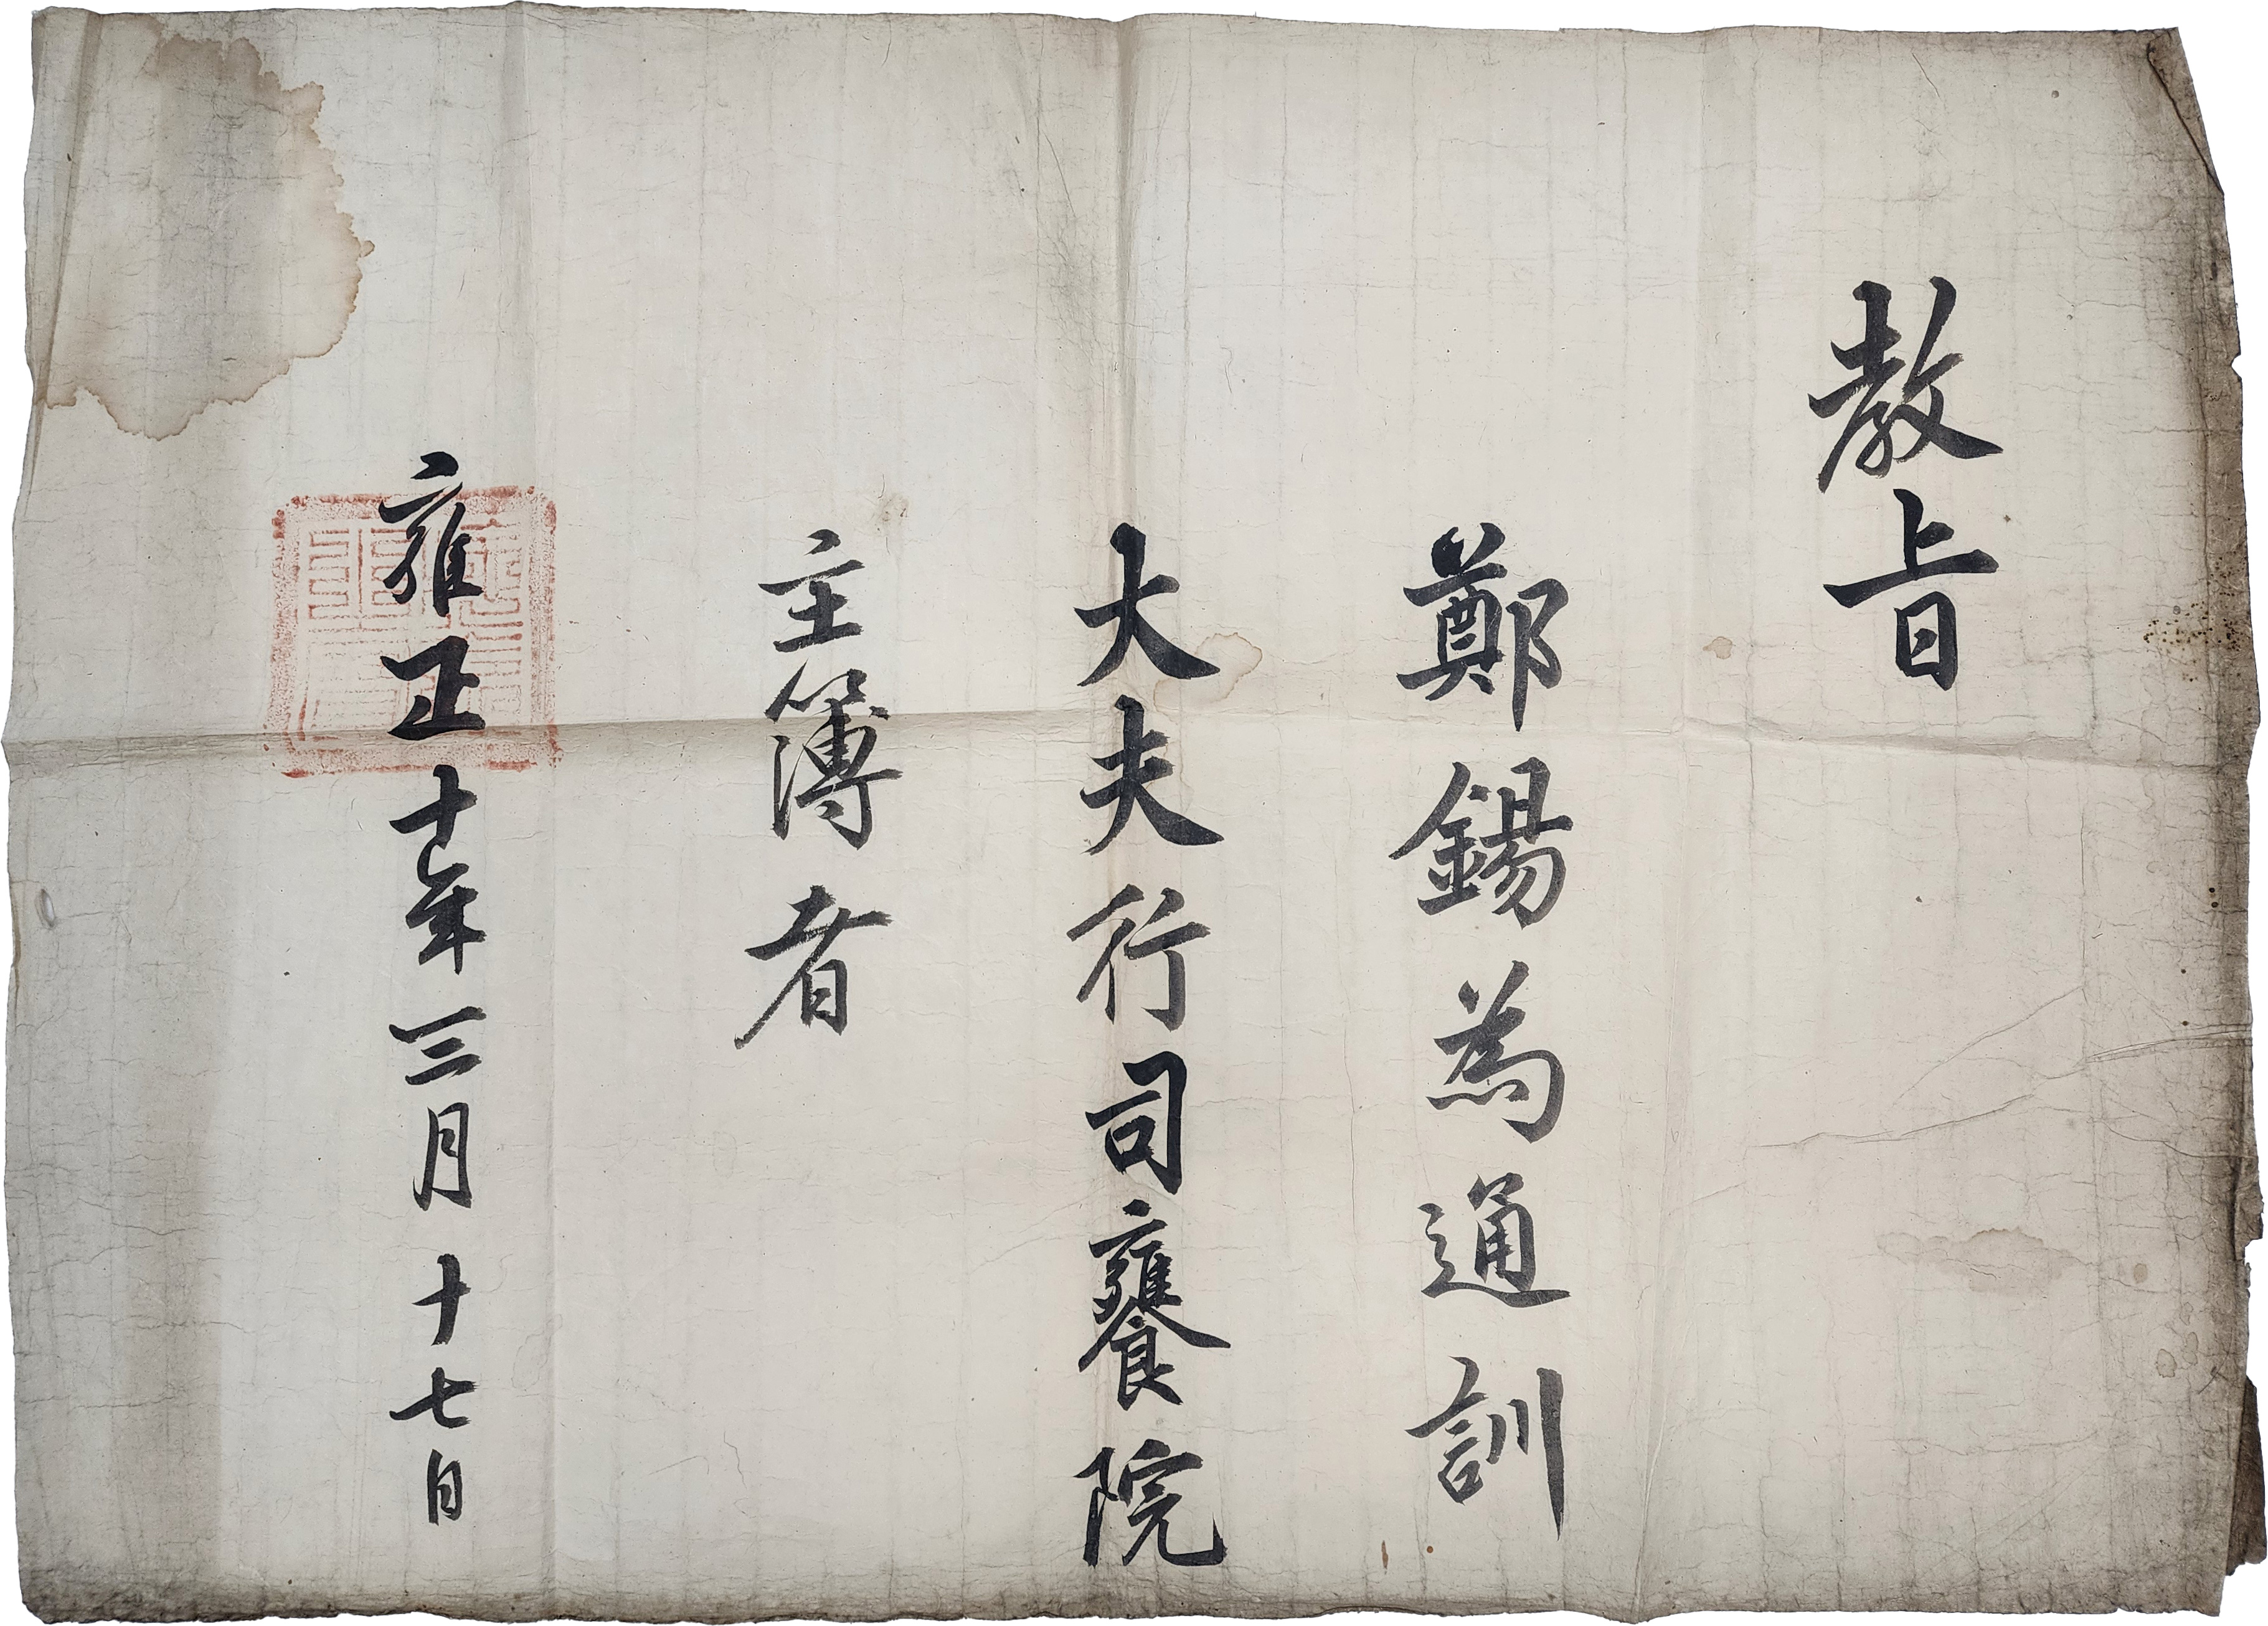 教旨
鄭錫為通訓
大夫行司饔院
主簿者
雍正十年三月十七日